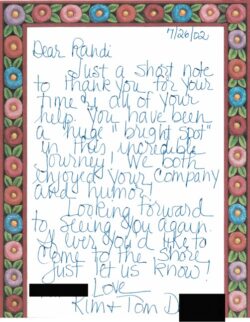 7/26/02
Dear Randi
Just a short note
to thank you for your
time & all of your
help. You have been
a "huge" bright spot"
in this incredible
journey! We both
enjoyed your company
and humor!
Looking forward
to seeing you again.
If ever you'd like to
come to the shore
just let us know!
Love
Kim + Tom D